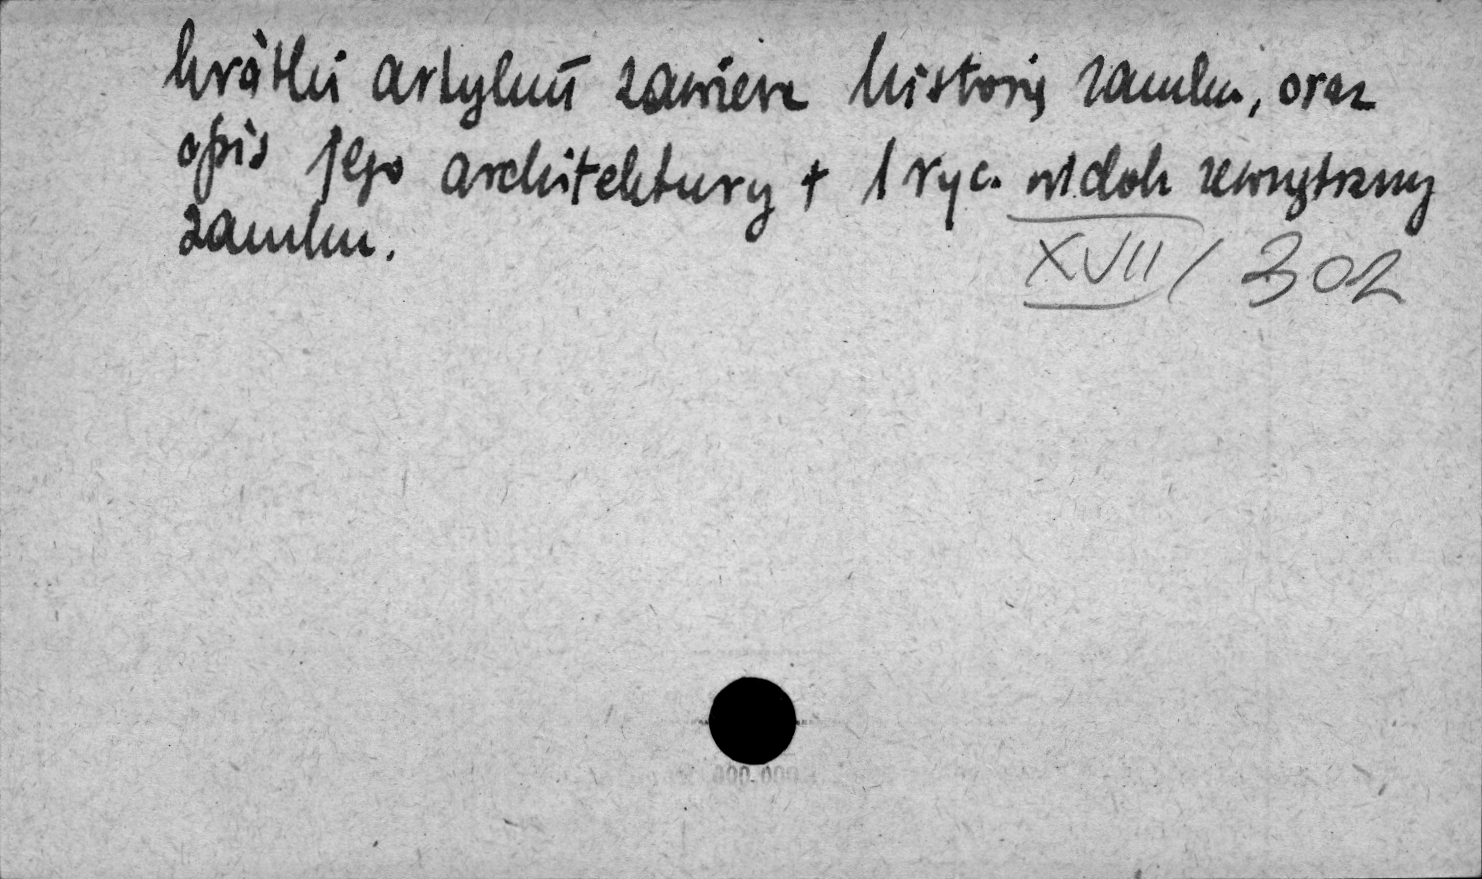 krótki artykuł zawiera historię zamku, oraz
opis jego architektury + 1 ryc. widok zewnętrzny
zamku.
XVII / 302
000.000